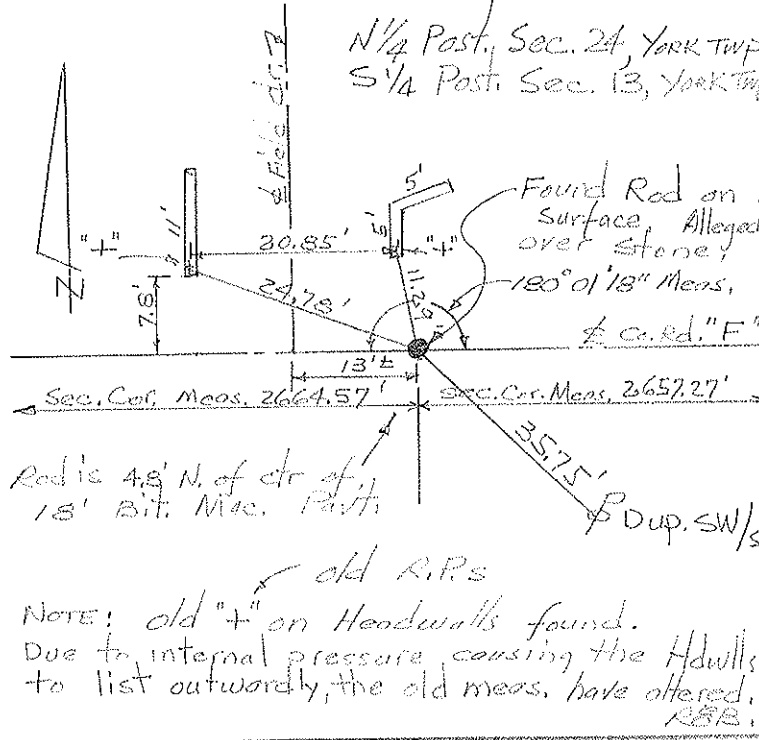 N 1/4 Post, Sec. 24, YORK TWP
S 1/4 Post. Sec. 13, YORK TWP
℄ Field dr.
Found Rod on
Surface, Alleged
over stone;
180°01'18" Meas.
℄ Co. Rd. "F"
5'
5'
11'
"+"
"+"
20.85'
24.78'
7.8'
Z
13'±
Sec. Cor. Meas. 2664.57'
Sec. Cor. Meas. 2657.27'
35.75'
Dup. SW/s
Rod is 4.8' N. of ctr of
18' Bit. Mac. Pavt.
old R.P.s
NOTE: old "+" on Headwalls found.
Due to internal pressure causing the Hdwlls
to list outwardly, the old meas. have altered.